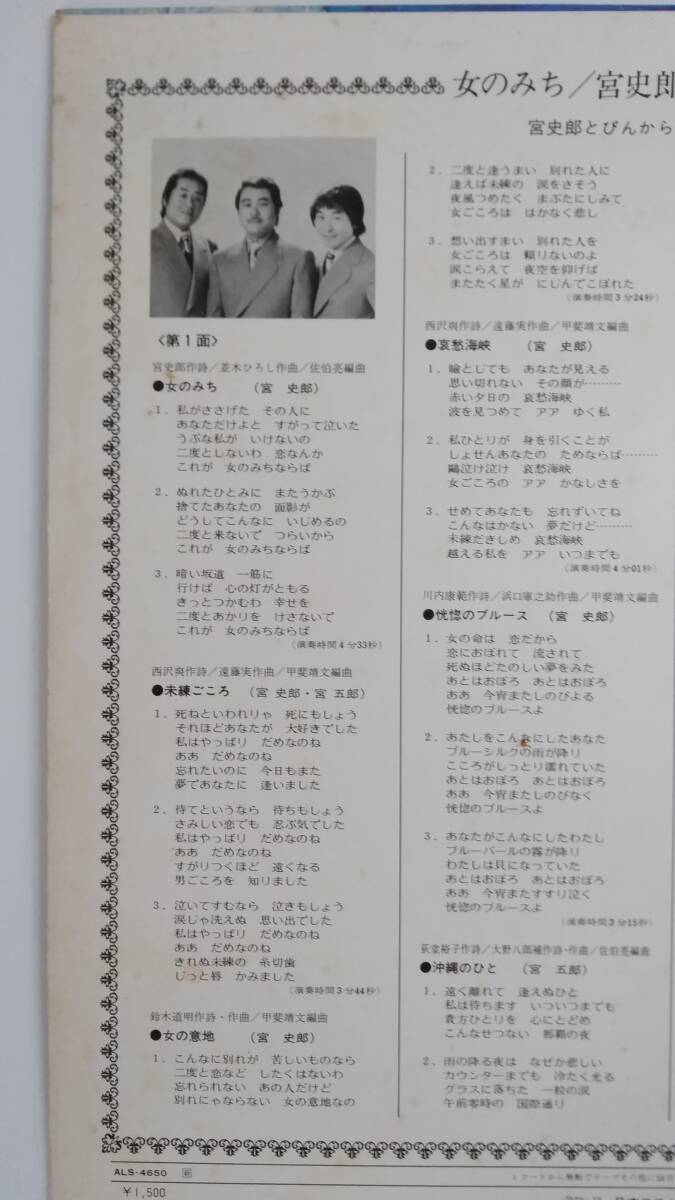 女のみち／宮史郎
宮史郎とぴんから
〈第1面〉
宮史郎作詩／並木ひろし作曲／佐伯亮編曲
●女のみち　（宮　史郎）
1．私がささげた　その人に
あなただけよと　すがって泣いた
うぶな私が　いけないの
二度としないわ　恋なんか
これが　女のみちならば
2．ぬれたひとみに　またうかぶ
捨てたあなたの　面影が
どうしてこんなに　いじめるの
二度と来ないで　つらいから
これが　女のみちならば
3．暗い坂道　一筋に
行けば　心の灯がともる
きっとつかむわ　幸せを
二度とあかりを　けさないで
これが　女のみちならば
（演奏時間4分33秒）
西沢爽作詩／遠藤実作曲／甲斐靖文編曲
●未練ごころ　（宮　史郎・宮　五郎）
1．死ねといわれりゃ　死にもしょう
それほどあなたが　大好きでした
私はやっぱり　だめなのね
ああ　だめなのね
忘れたいのに　今日もまた
夢であなたに　逢いました
2．待てというなら　待ちもしょう
さみしい恋でも　忍ぶ気でした
私はやっぱり　だめなのね
ああ　だめなのね
すがりつくほど　遠くなる
男ごころを　知りました
3．泣いてすむなら　泣きもしょう
涙じゃ洗えぬ　思い出でした
私はやっぱり　だめなのね
ああ　だめなのね
きれぬ未練の　糸切歯
じっと唇　かみました
（演奏時間3分44秒）
鈴木道明作詩・作曲／甲斐靖文編曲
●女の意地　（宮　史郎）
1．こんなに別れが　苦しいものなら
二度と恋など　したくはないわ
忘れられない　あの人だけど
別れにゃならない　女の意地なの
2．二度と逢うまい　別れた人に
逢えば未練の　涙をさそう
夜風つめたく　まぶたにしみて
女ごころは　はかなく悲し
3．想い出すまい　別れた人を
女ごころは　頼りないのよ
涙こらえて　夜空を仰げば
またたく星が　にじんでこぼれた
（演奏時間3分24秒）
西沢爽作詩／遠藤実作曲／甲斐靖文編曲
●哀愁海峡　（宮　史郎）
1．瞼とじても　あなたが見える
思い切れない　その顔が………
赤い夕日の　哀愁海峡
波を見つめて　アア　ゆく私
2．私ひとりが　身を引くことが
しょせんあなたの　ためならば………
鷗泣け泣け　哀愁海峡
女ごころの　アア　かなしさを
3．せめてあなたも　忘れずいてね
こんなはかない　夢だけど………
未練だきしめ　哀愁海峡
越える私を　アア　いつまでも
（演奏時間4分01秒）
川内康範作詩／浜口庫之助作曲／甲斐靖文編曲
●恍惚のブルース　（宮　史郎）
1．女の命は　恋だから
恋におぼれて　流されて
死ぬほどたのしい夢をみた
あとはおぼろ　あとはおぼろ
ああ　今宵またしのびよる
恍惚のブルースよ
2．あたしをこんなにしたあなた
ブルーシルクの雨が降り
こころがしっとり濡れていた
あとはおぼろ　あとはおぼろ
ああ　今宵またしのびなく
恍惚のブルースよ
3．あなたがこんなにしたわたし
ブルーパールの霧が降り
わたしは貝になっていた
あとはおぼろ　あとはおぼろ
ああ　今宵またすすり泣く
恍惚のブルースよ
（演奏時間3分15秒）
荻堂裕子作詩／大野八郎補作詩・作曲／佐伯亮編曲
●沖縄のひと　（宮　五郎）
1．遠く離れて　逢えぬひと
私は待ちます　いついつまでも
貴方ひとりを　心にとどめ
こんなせつない　那覇の夜
2．雨の降る夜は　なぜか悲しい
カウンターまでも　冷たく光る
グラスに落ちた　一粒の涙
午前零時の　国際通り
ALS-4650
￥1,500
レコードから無断でテープその他に録音